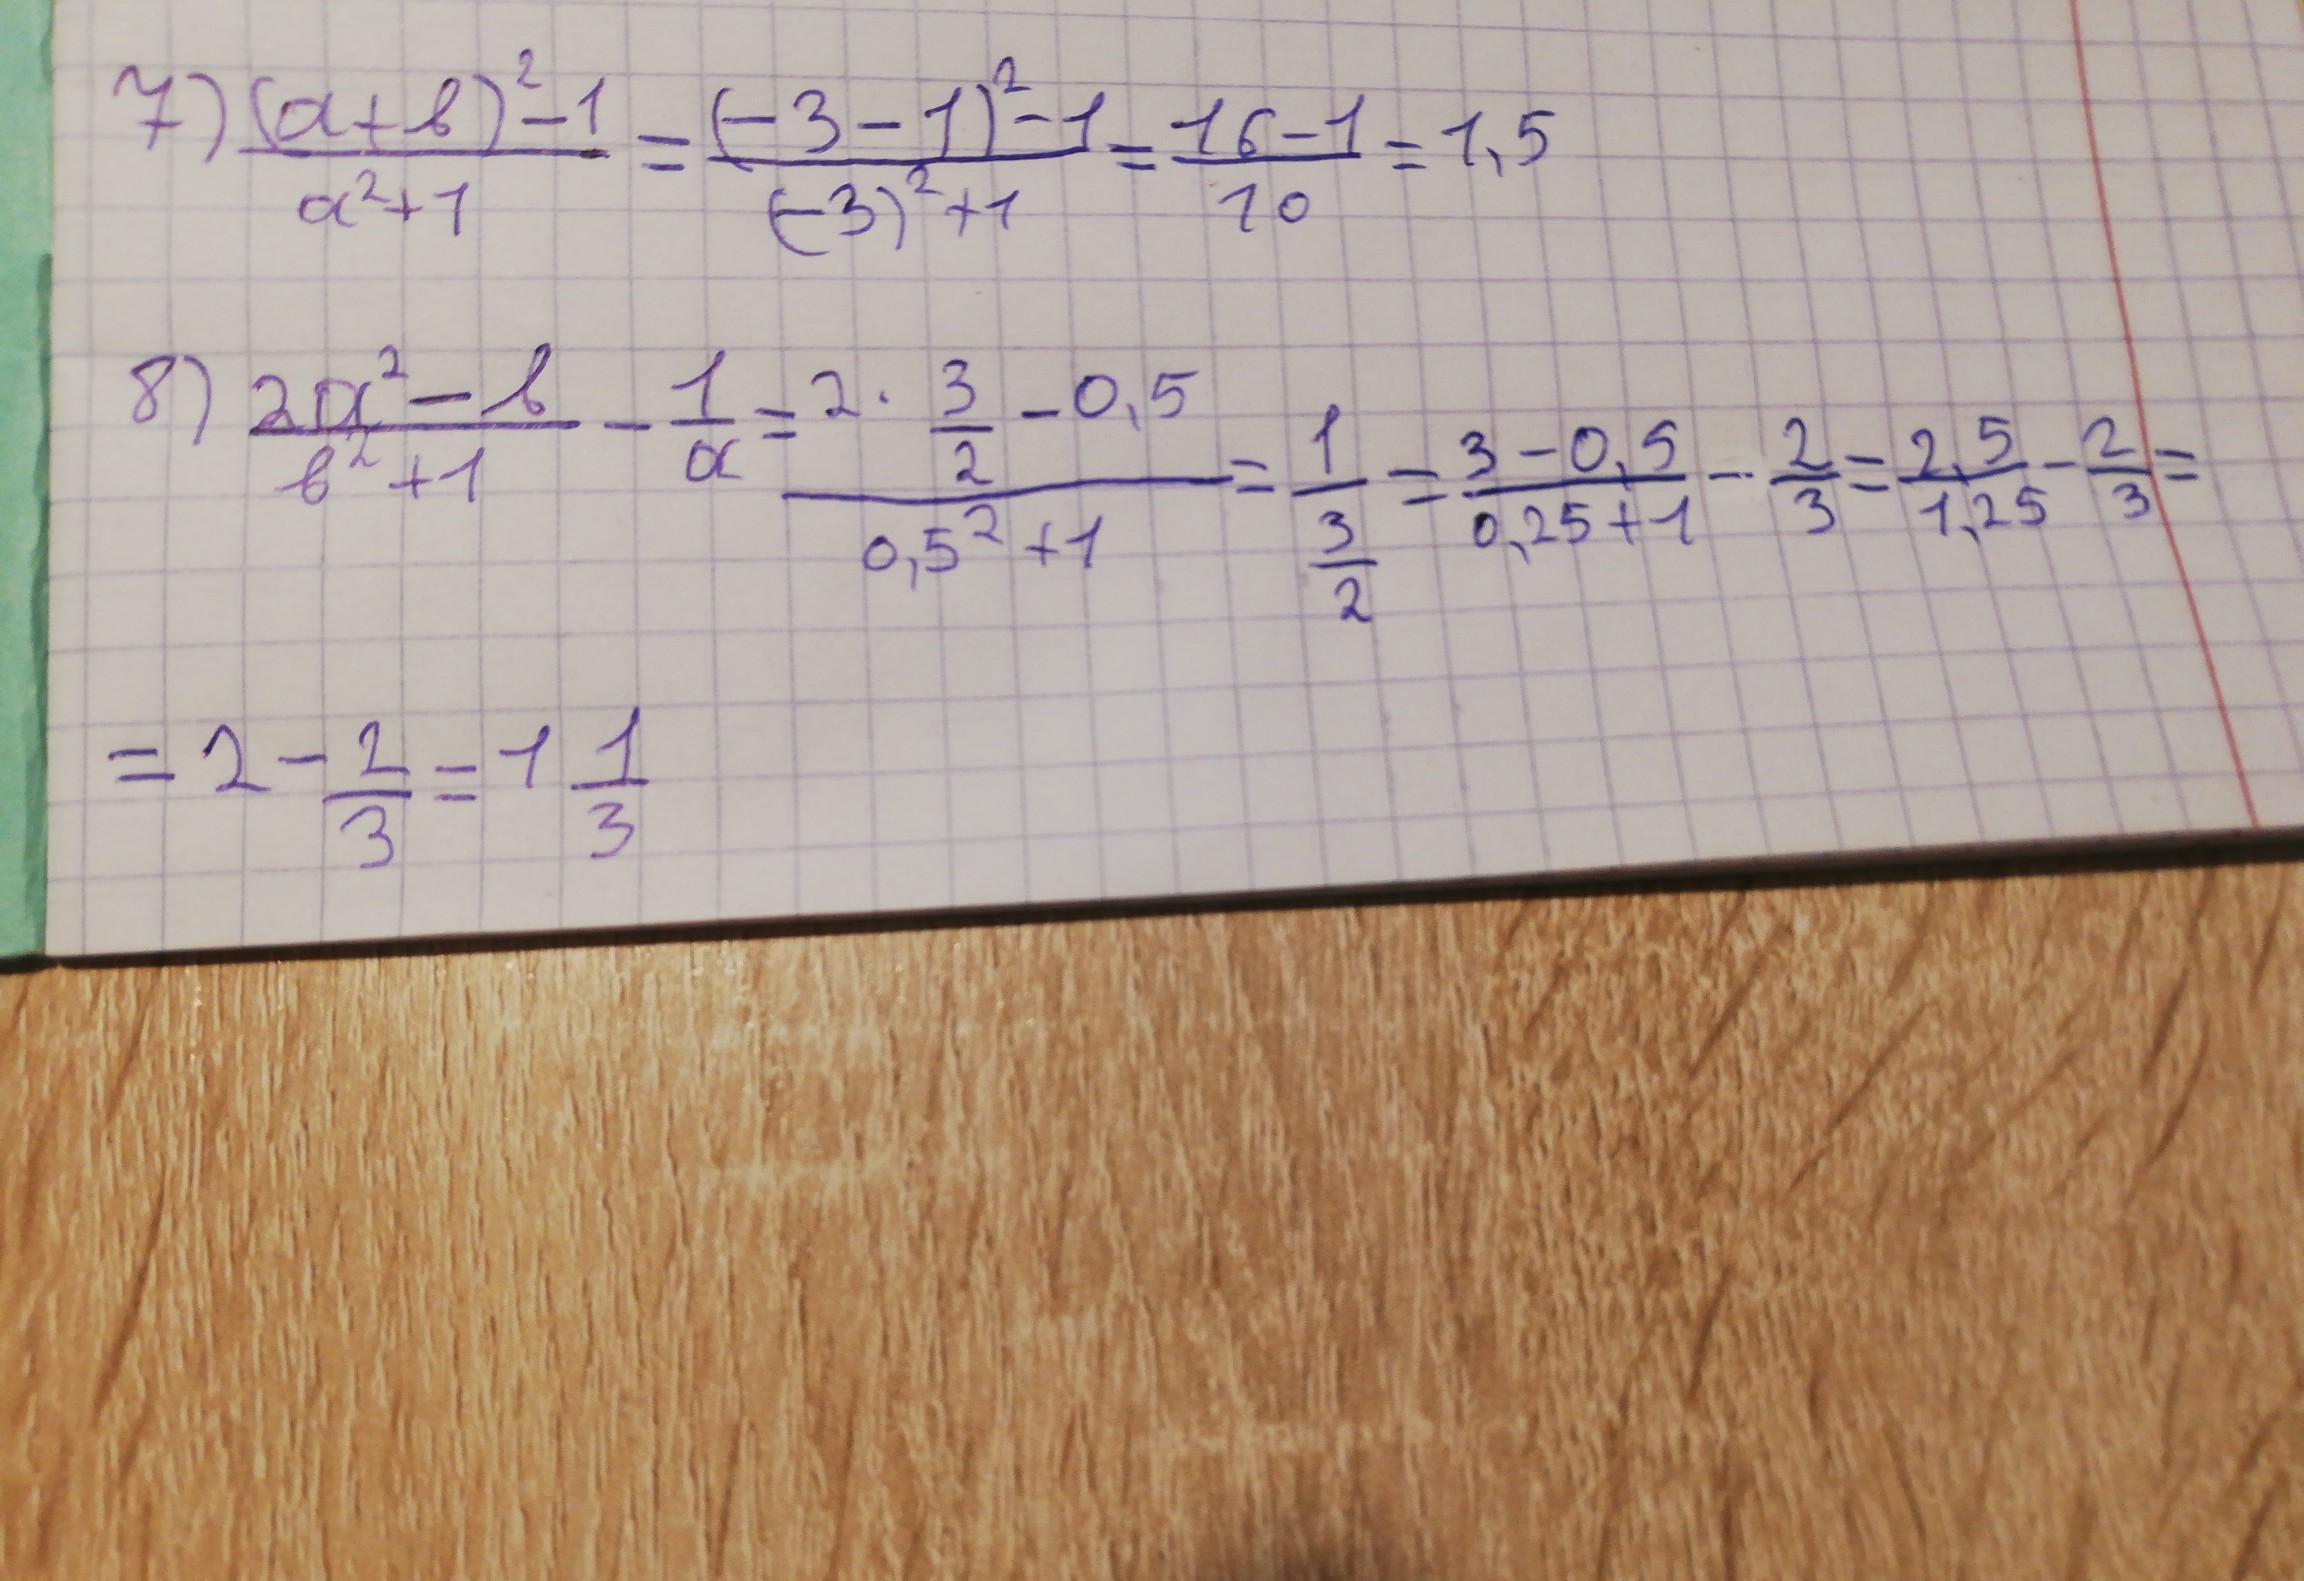 7) (a+b)²-1 / a²+1 = (-3-1)²-1 / (-3)²+1 = 16-1 / 10 = 1,5
8) 2a²-b / b²+1 - 1/a = 2· 3/2 -0,5 / 0,5²+1 = 1 / 3/2 = 3-0,5 / 0,25+1 - 2/3 = 2,5 / 1,25 - 2/3 =
= 2 - 2/3 = 1 1/3